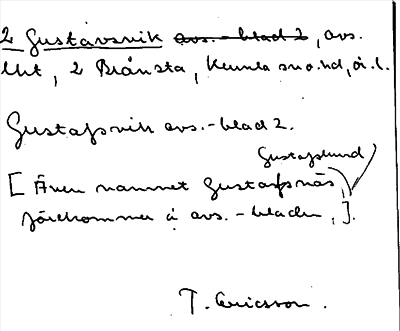 2 Gustavsvik avs.-blad 2, avs.
lht, 2 Brånsta, Kumla sn o. hd, Ör. l.
Gustafsvik avs.-blad 2.
Gustafslund
[Även namnet Gustafsnäs,
förekommer å avs.-bladen,].
T. Ericsson.